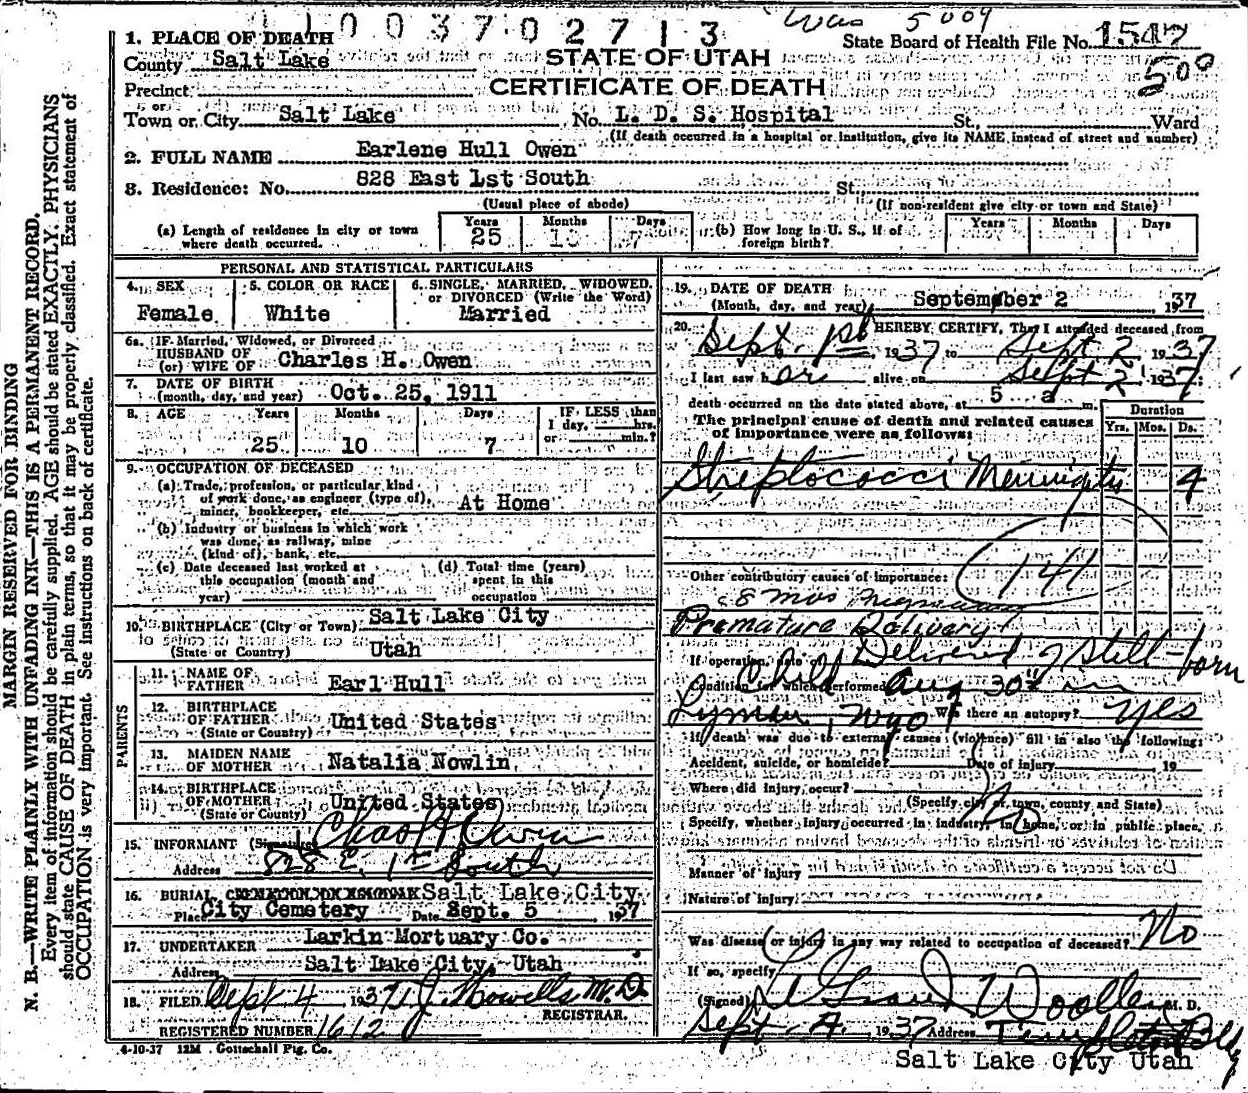 1003702713
Was 5009
State Board of Health File No. 1547
500
1. PLACE OF DEATH
County Salt Lake
STATE OF UTAH
Precinct
CERTIFICATE OF DEATH
or
Town or City Salt Lake No. L. D. S. Hospital St., Ward
(If death occurred in a hospital or institution, give its NAME instead of street and number)
2. FULL NAME Earlene Hull Owen
3. Residence: No. 828 East 1st South St.
(Usual place of abode) (If non-resident give city or town and State)
(a) Length of residence in city or town where death occurred. Years 25 Months 10 Days 7
(b) How long in U. S., if of foreign birth? Years Months Days
PERSONAL AND STATISTICAL PARTICULARS
4. SEX Female
5. COLOR OR RACE White
6. SINGLE, MARRIED, WIDOWED, or DIVORCED (Write the Word) Married
6a. IF Married, Widowed, or Divorced
HUSBAND OF
(or) WIFE OF Charles H. Owen
7. DATE OF BIRTH
(month, day, and year) Oct. 25, 1911
8. AGE Years 25 Months 10 Days 7 IF LESS than 1 day, hrs. or min.?
9. OCCUPATION OF DECEASED
(a) Trade, profession, or particular kind of work done, as engineer (type of), miner, bookkeeper, etc. At Home
(b) Industry or business in which work was done, as railway, mine (kind of), bank, etc.
(c) Date deceased last worked at this occupation (month and year)
(d) Total time (years) spent in this occupation
10. BIRTHPLACE (City or Town) Salt Lake City
(State or Country) Utah
PARENTS
11. NAME OF FATHER Earl Hull
12. BIRTHPLACE OF FATHER (State or Country) United States
13. MAIDEN NAME OF MOTHER Natalia Nowlin
14. BIRTHPLACE OF MOTHER (State or County) United States
15. INFORMANT (Signature) Chas H Owen
Address 828 E. 1st South
16. BURIAL Salt Lake City
Place City Cemetery Date Sept. 5 1937
17. UNDERTAKER Larkin Mortuary Co.
Address Salt Lake City, Utah
18. FILED Sept 4 1937 M.D.
REGISTRAR.
REGISTERED NUMBER 1612
4-10-37 12M Gottschall Ptg. Co.
19. DATE OF DEATH
(Month, day, and year) September 2 1937
20. I HEREBY CERTIFY, That I attended deceased from
Sept. 1st 1937 to Sept 2 1937
I last saw her alive on Sept 2 1937:
death occurred on the date stated above, at 5 a m.
The principal cause of death and related causes of importance were as follows:
Duration
Yrs. Mos. Ds.
Streptococci Meningitis 4
141
Other contributory causes of importance:
8 mos pregnancy
Premature Delivery
If operation, date of Delivered of Still-born
Child
Condition for which performed Aug 30th in
Lyman, Wyo Was there an autopsy? yes
If death was due to external causes (violence) fill in also the following:
Accident, suicide, or homicide? Date of injury 19
Where did injury occur?
(Specify city or town, county and State)
No
Specify, whether injury occurred in industry, in home, or in public place.
Manner of injury
Nature of injury
Was disease or injury in any way related to occupation of deceased? No
If so, specify
(Signed) LeGrand Woolley M. D.
Sept. 1937 Address Templeton Bldg
Salt Lake City Utah
MARGIN RESERVED FOR BINDING
N. B.—WRITE PLAINLY WITH UNFADING INK—THIS IS A PERMANENT RECORD.
Every item of information should be carefully supplied. AGE should be stated EXACTLY. PHYSICIANS
should state CAUSE OF DEATH in plain terms, so that it may be properly classified. Exact statement of
OCCUPATION is very important. See instructions on back of certificate.